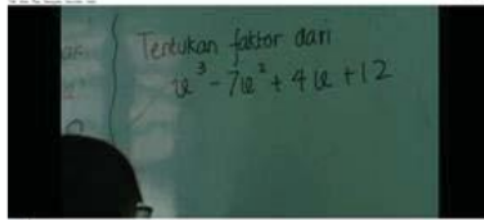 Tentukan faktor dari
x³ - 7x² + 4x + 12